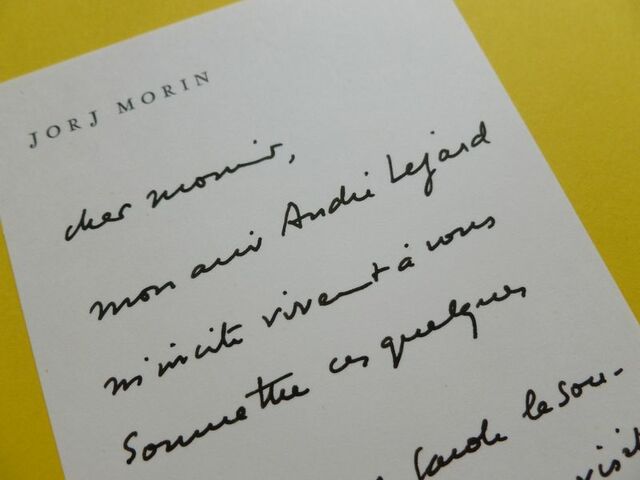 JORJ MORIN
cher monsieur,
mon ami André Lejard
m'incite vivement à vous
soumettre ces quelques
garde le sou-
visit